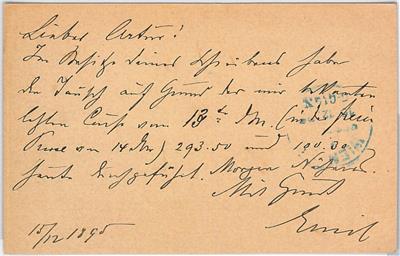 Lieber Artur!
Im Besitze deines Schreibens habe
den Tausch auf Grund der mir bekannten
letzten Course vom 13ten Dz. (in der freien
vom 14 Dz.) 293.50 und 190.00
heute durchgeführt. Morgen Näheres.
Mit Gruß
Emil
15/12 1895
WIEN